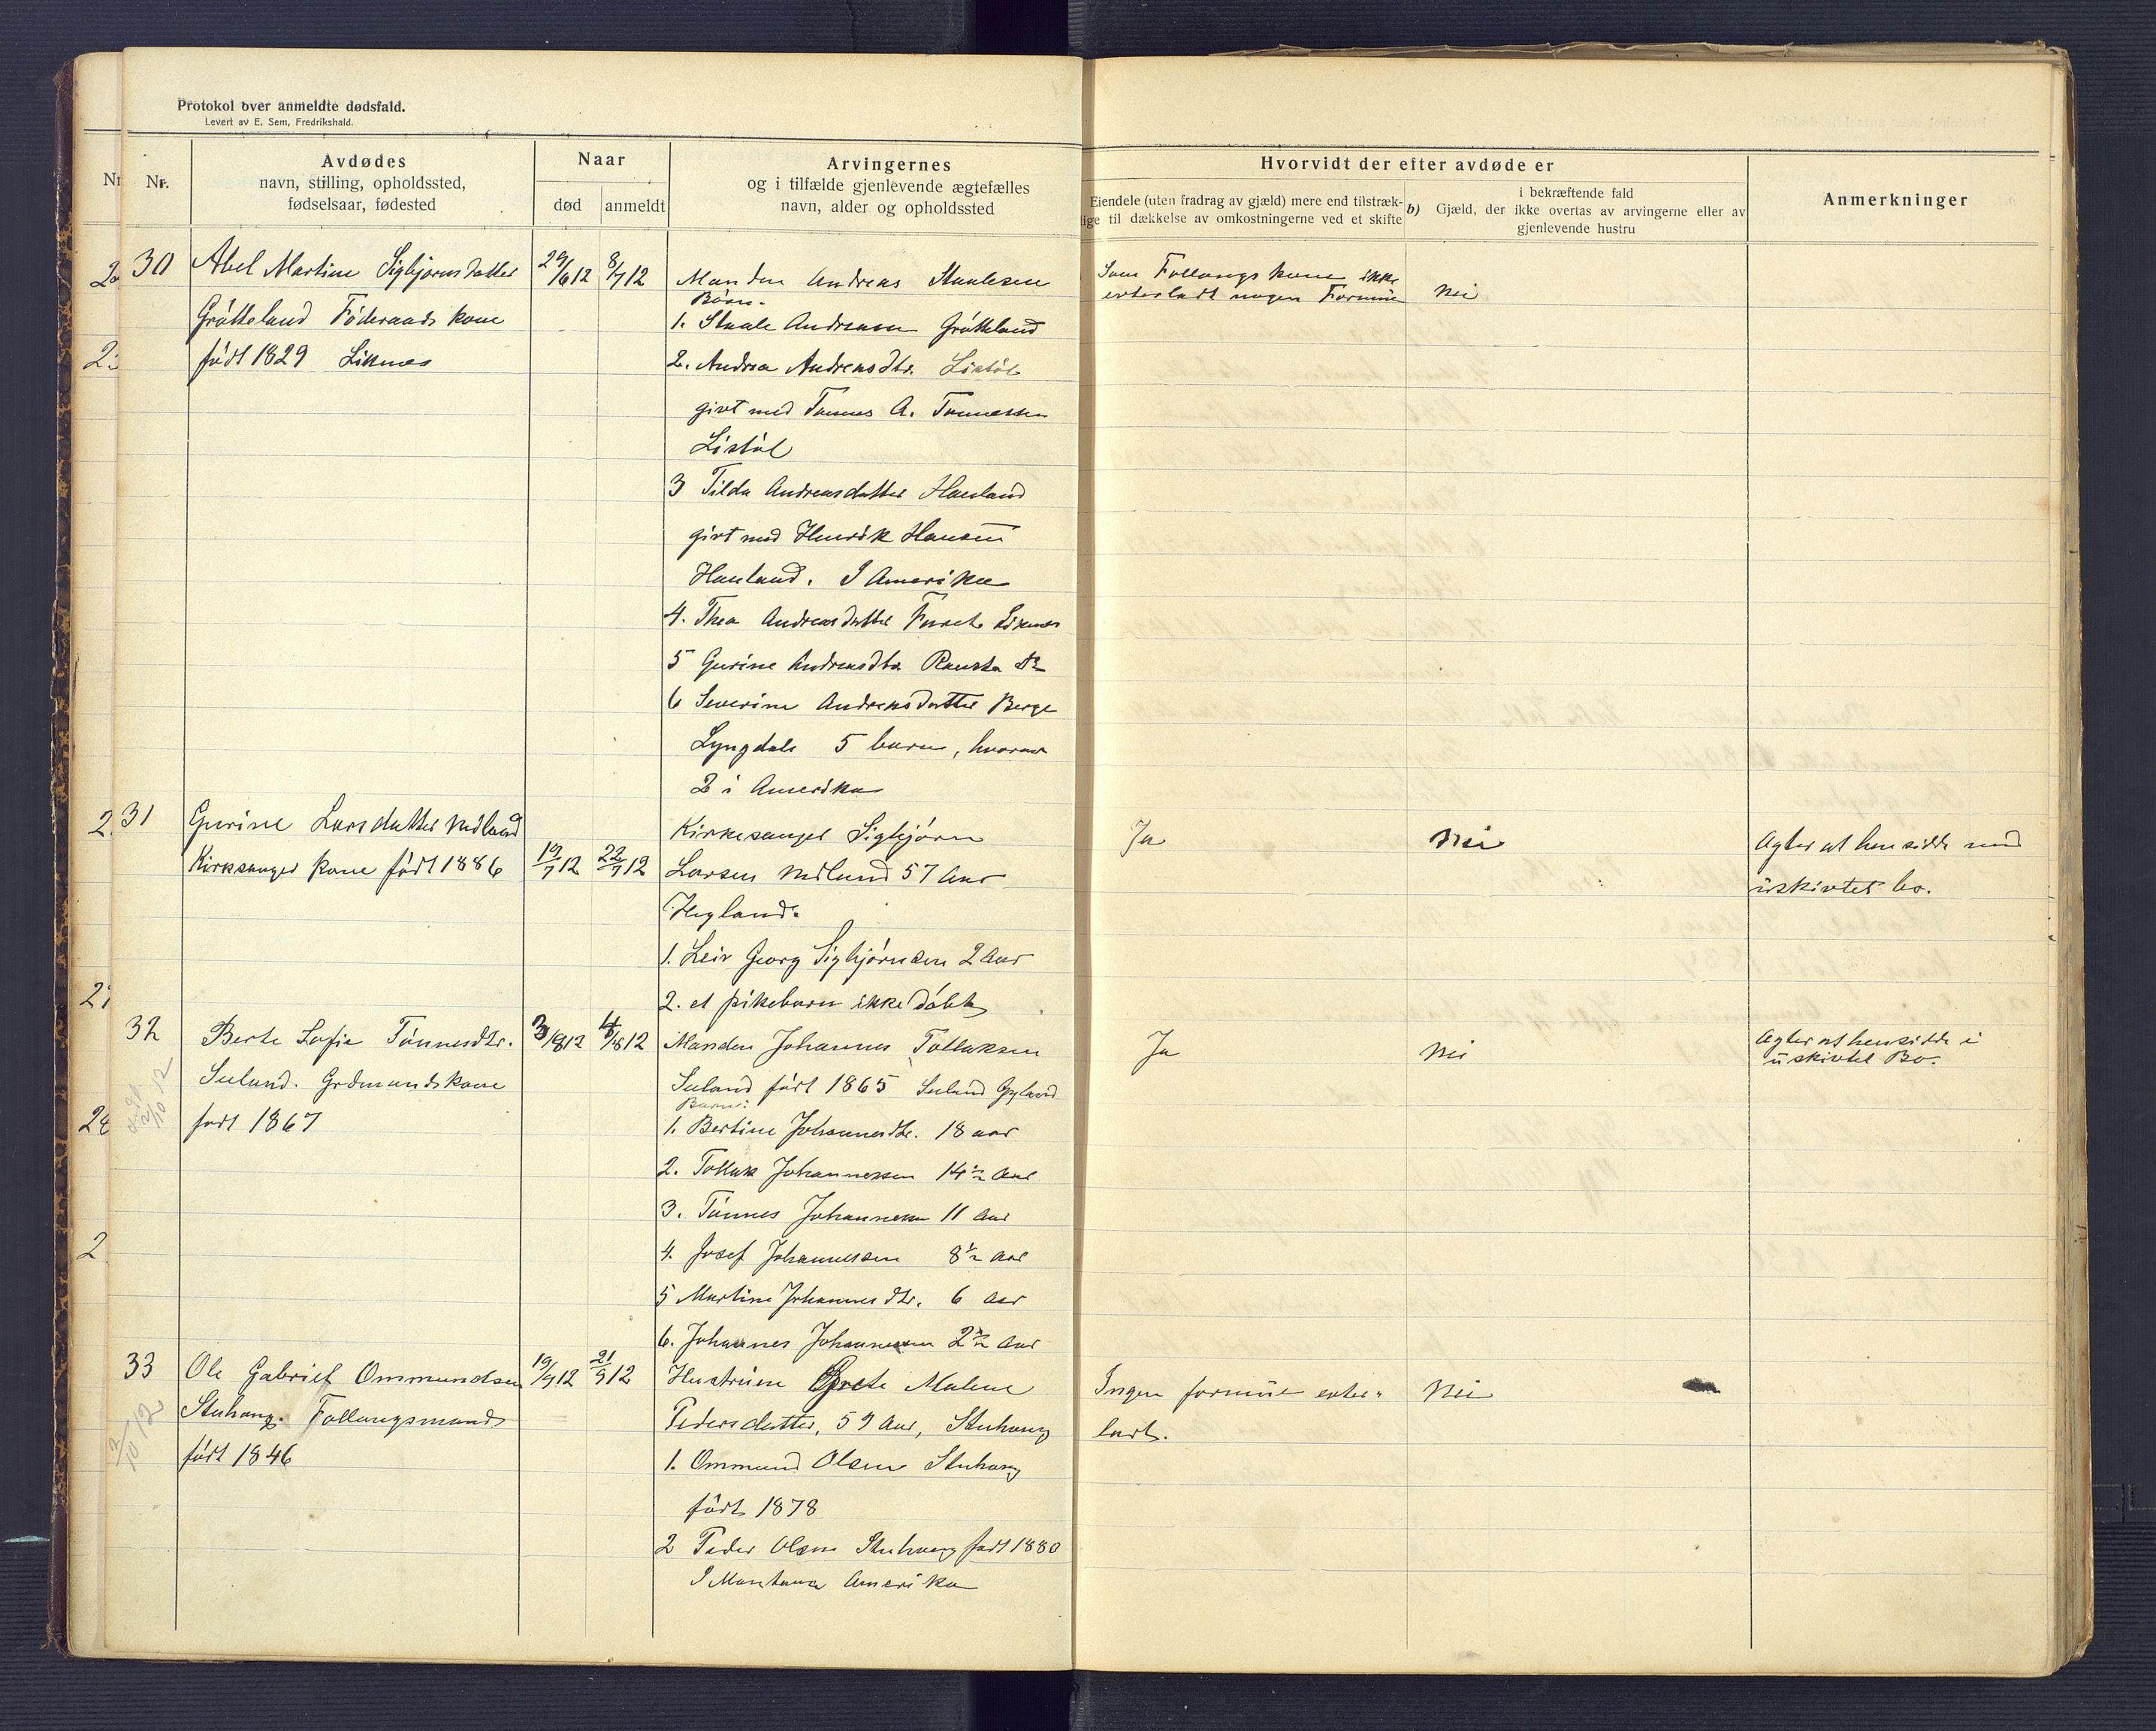 Protokol over anmeldte dødsfald.
Levert av E. Sem, Fredrikshald.
Nr.
Avdødes
navn, stilling, opholdssted,
fødselsaar, fødested
Naar
død
anmeldt
Arvingernes
og i tilfælde gjenlevende ægtefælles
navn, alder og opholdssted
Hvorvidt der efter avdøde er
Eiendele (uten fradrag av gjæld) mere end tilstræk-
lige til dækkelse av omkostningerne ved et skifte
b)
i bekræftende fald
Gjæld, der ikke overtas av arvingerne eller av
gjenlevende hustru
Anmerkninger
30
Abel Martine Sigbjørnsdatter
Gråtteland Føderaads kone
født 1829 Liknes
29/6 12
8/7 12
Manden Andreas Staalesen
Børn.
1. Staale Andreasen Gråtteland
2. Andrea Andreasdtr. Listøl
givt med Tønnes A. Tønnessen
Listøl
3 Tilda Andreasdatter Hauland
givt med Henrik Hansen
Hauland. I Amerika
4. Thea Andreasdatter Liknes
5 Gurine Andreasdtr.
6 Severine Andreasdatter Berge
Lyngdal 5 barn, hvorav
2 i Amerika
Som Follougs kone ikke
efterladt nogen Formue
Nei
31
Gurine Larsdatter Midland
Kirksanger kone født 1886
19/7 12
22/7 12
Kirkesanger Sigbjørn
Larsen Midlund 57 Aar
Hegland.
1. Leiv Georg Sigbjørnsen 2 Aar
2. et pikebarn ikke døbt
Ja
Nei
Agter at hensidde med
uskivtet bo.
32
Berte Sofie Tønnesdtr.
Seland. Grdmandskone
født 1867
3/8 12
4/8 12
Manden Johannes Tollaksen
Seland født 1865 Seland Gyland
Barn:
1. Bertine Johannesdtr. 18 aar
2. Tollak Johannessen 14½ Aar
3. Tønnes Johannessen 11 Aar
4. Josef Johannessen 8½ Aar
5 Martine Johannesdtr. 6 Aar
6. Johannes Johannessen 2½ Aar
Ja
Nei
Agter at hensidde i
uskivtet Bo.
2/10 12
33
Ole Gabriel Ommundsen
Stuhaug. Follougsmand
født 1846
19/9 12
21/9 12
Hustruen Grete Malene
Pedersdatter, 59 Aar, Stuhaug
1. Ommund Olsen Stuhaug
født 1878
2 Peder Olsen Stuhaug født 1880
I Montana Amerika
Ingen formue efter-
ladt.
Nei
2/10 12